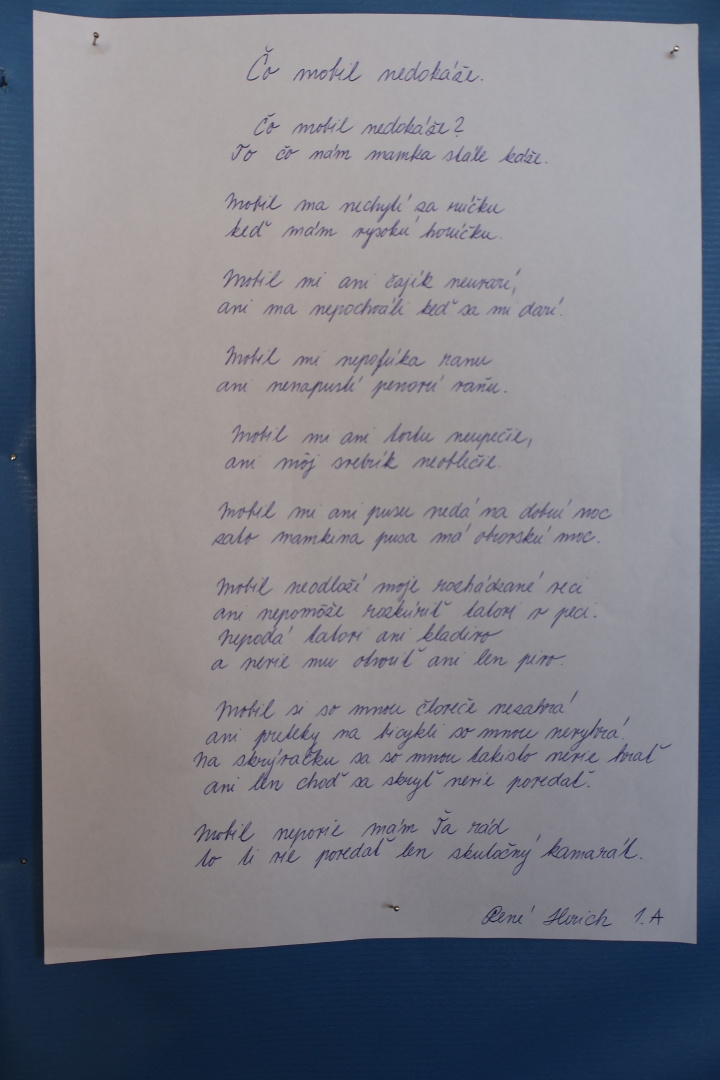 Čo mobil nedokáže.
Čo mobil nedokáže?
To čo nám mamka stále káže.
Mobil ma nechytí za rúčku
keď mám vysokú horúčku.
Mobil mi ani čajík neuvarí,
ani ma nepochváli keď sa mi darí.
Mobil mi nepofúka ranu
ani nenapustí penovú vaňu.
Mobil mi ani tortu neupečie,
ani môj svetrík neoblečie.
Mobil mi ani pusu nedá na dobrú noc
zato mamkina pusa má obrovskú moc.
Mobil neodloží moje rozhádzané veci
ani nepomôže rozkúriť tatovi v peci.
Nepodá tatovi ani kladivo
a nevie mu otvoriť ani len pivo.
Mobil si so mnou človeče nezahrá
ani preteky na bicykli so mnou nevyhrá.
Na skrývačku sa so mnou takisto nevie hrať
ani len choď sa skryť nevie povedať.
Mobil nepovie mám Ťa rád
to ti vie povedať len skutočný kamarát.
René 1.A